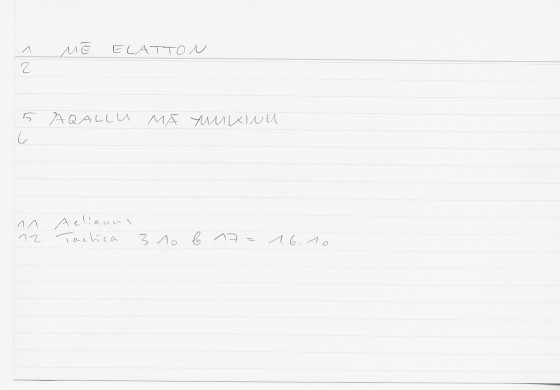 1 MĒ ELATTON
2
5 AQALLU MĀ YUMKINU
6
11 Aelianus
12 Tactica 3 10 b 17 = 16.10